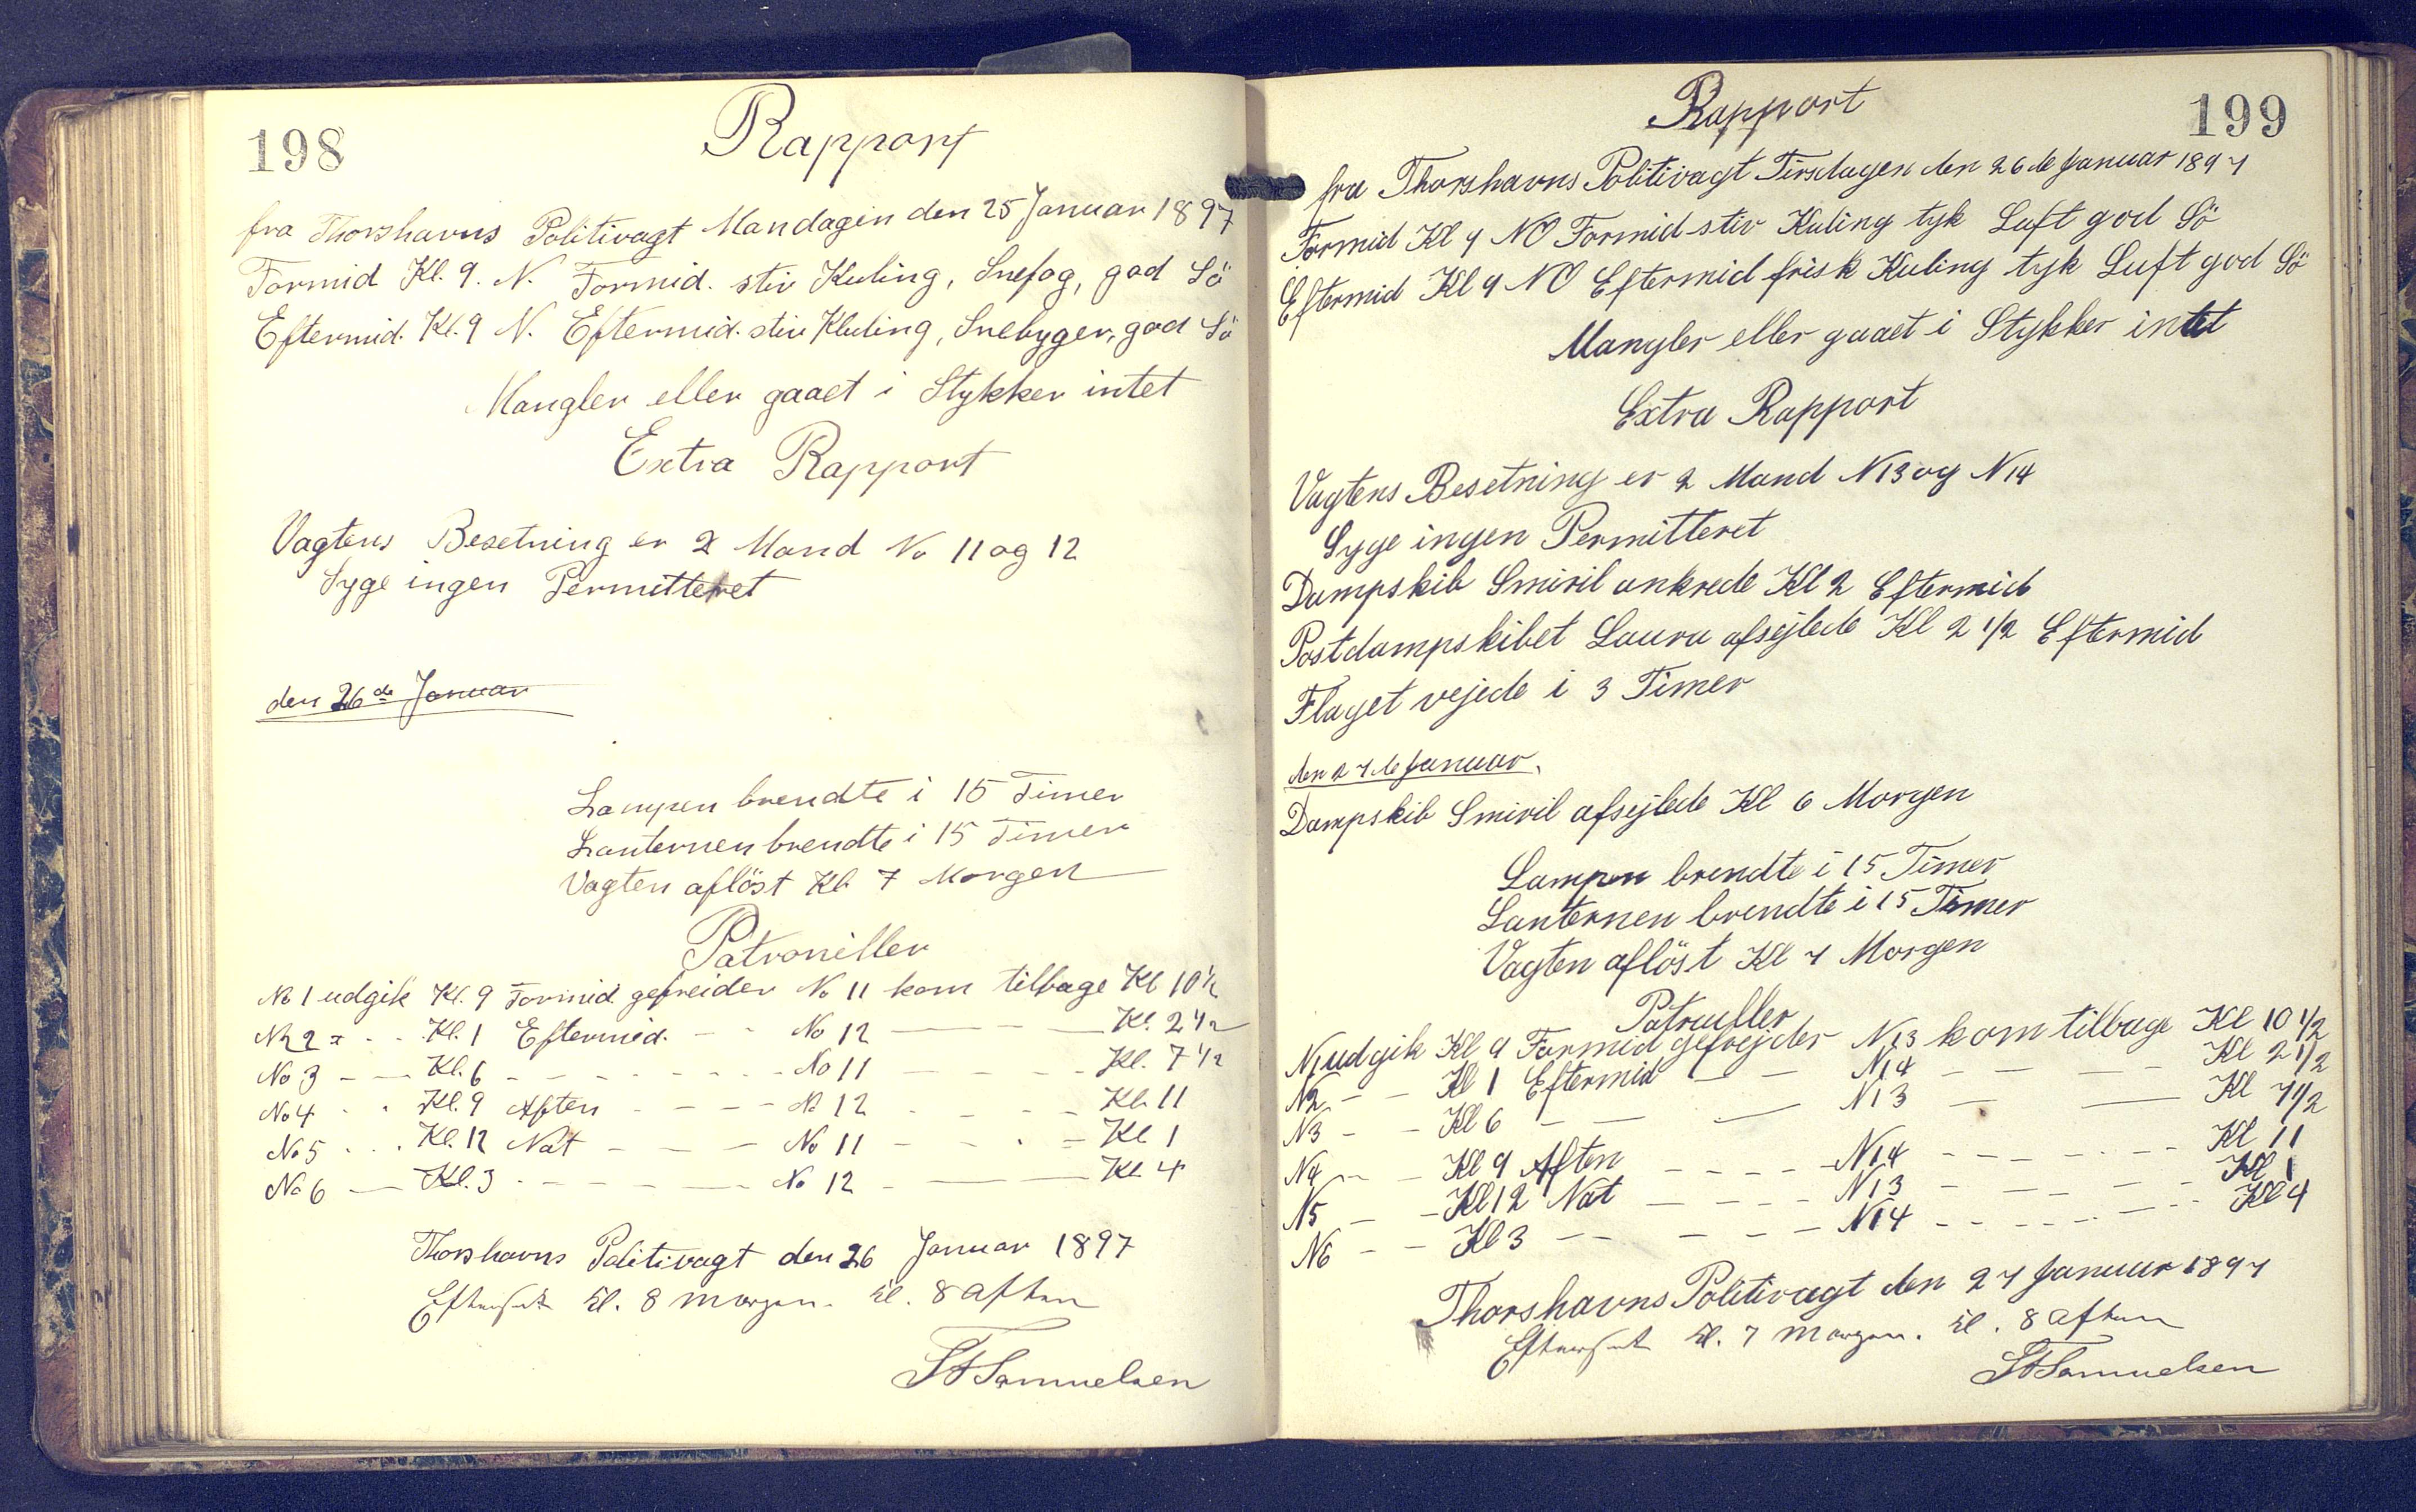 198
Rapport
fra Thorshavns Politivagt Mandagen den 25 Januar 1897
Formid Kl. 9. N. Formid. stiv Kuling, Snefog, god Sö
Eftermid. Kl. 9 N. Eftermid. stiv Kuling, Snebyger, god Sö
Mangler eller gaaet i Stykker intet
Extra Rapport
Vagtens Besetning er 2 Mand No 11 og 12
Syge ingen Permitteret
den 26de Januar
Lampen brendte i 15 Timer
Lanternen brendte i 15 Timer
Vagten aflöst Kl. 7 Morgen
Patroniller
No 1 udgik Kl. 9 Formid. gefreider No 11 kom tilbage Kl 10 1/2
No 2 - - Kl. 1 Eftermid. - - No 12 - - - Kl. 2 1/2
No 3 - - Kl. 6 - - - - - No 11 - - - Kl. 7 1/2
No 4 - - Kl. 9 Aften - - - No 12 - - - Kl. 11
No 5 - - Kl. 12 Nat - - - No 11 - - - Kl 1
No 6 - Kl. 3 - - - - No 12 - - - Kl 4
Thorshavns Politivagt den 26 Januar 1897
Efterset Kl. 8 Morgen. Kl. 8 Aften
Samuelsen
199
Rapport
fra Thorshavns Politivagt Tirsdagen den 26de Januar 1897
Formid Kl 9 NO Formid stiv Kuling tyk Luft god Sö
Eftermid Kl 9 NO Eftermid frisk Kuling tyk Luft god Sö
Mangler eller gaaet i Stykker intet
Extra Rapport
Vagtens Besetning er 2 Mand N13 og N14
Syge ingen Permitteret
Dampskib Smiril ankrede Kl 2 Eftermid
Postdampskibet Laura afsejlede Kl 2 1/2 Eftermid
Flaget vejede i 3 Timer
den 27de Januar.
Dampskib Smiril afsejlede Kl 6 Morgen
Lampen brendte i 15 Timer
Lanternen brendte i 15 Timer
Vagten aflöst Kl 7 Morgen
Patruller
N1 udgik Kl 9 Formid gefrejder N13 kom tilbage Kl 10 1/2
N2 - - Kl 1 Eftermid - - N14 - - - - Kl 2 1/2
N3 - - Kl 6 - - - N13 - - - Kl 7 1/2
N4 - - Kl 9 Aften - - - - N14 - - - - Kl 11
N5 - - Kl 12 Nat - - - - N13 - - - - Kl 1
N6 - - Kl 3 - - - - - N14 - - - - Kl 4
Thorshavns Politivagt den 27 Januar 1897
Efterset Kl. 7 Morgen. Kl. 8 Aften
Samuelsen